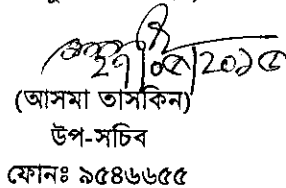 ২৭|০৫|২০১৫
(আসমা তাসকিন)
উপ-সচিব
ফোনঃ ৯৫৪৬৬৫৫